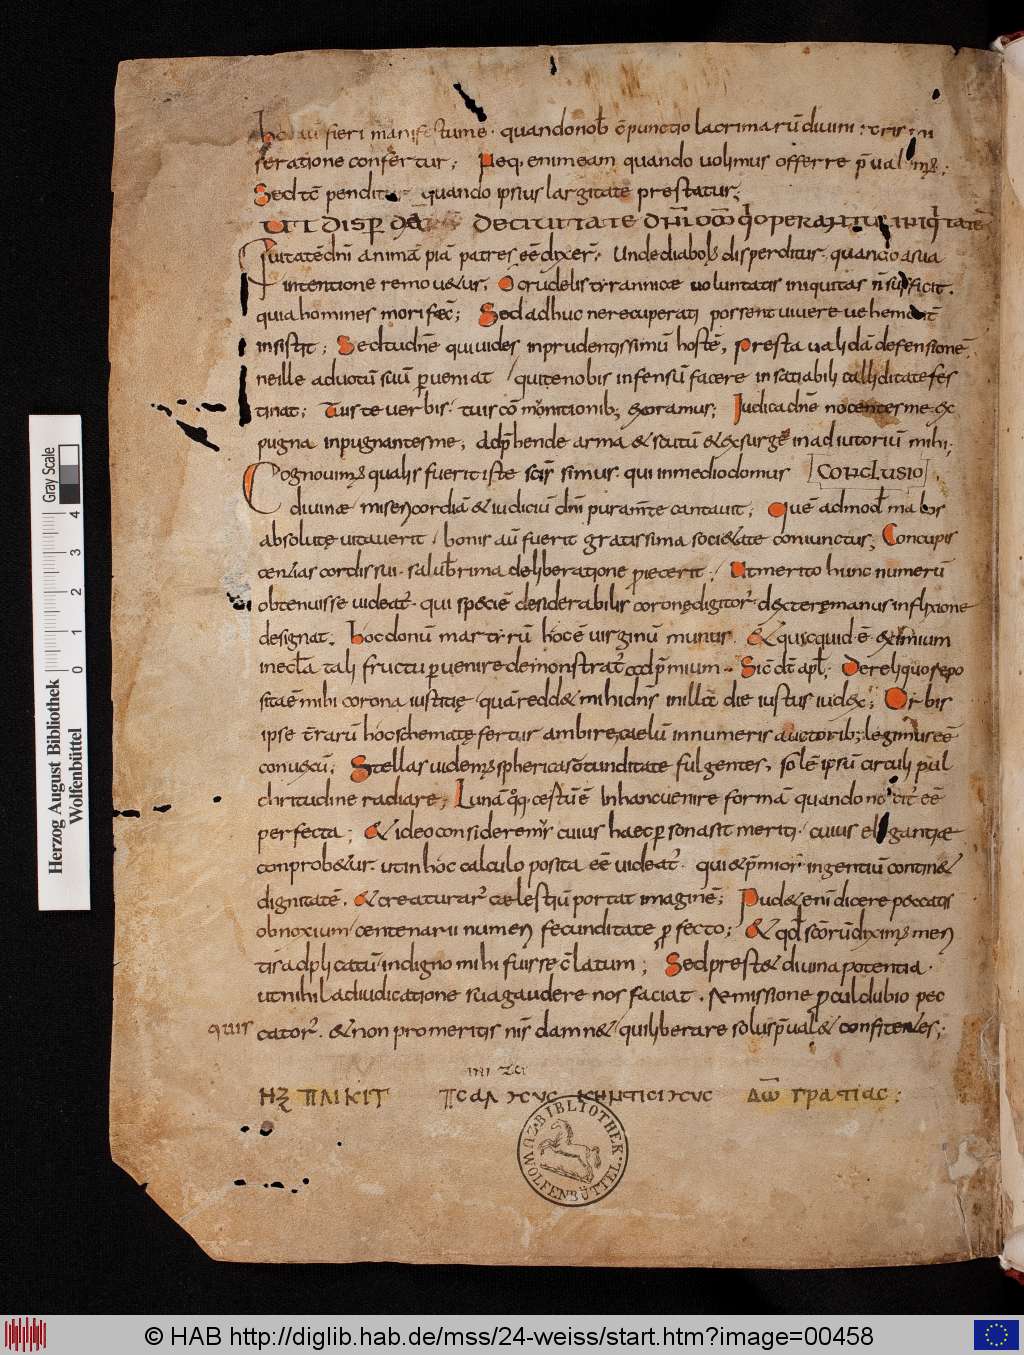 fieri manifestum e. quando nob cpunctio lacrimarū divini
seratione confertur; Neq. enim eam quando volimus offerre p̄val
Sed tc̄ penditur quando ipsius largitate prestatur;
UT DISP DE CIVITATE DNI OMS Q OPERANTUR INIQTATE
Civitatē dn̄i animā piā patres eē dixer. Unde diabol disperditur. quando a sua
intentione removetur. O crudelis tyrannicæ voluntatis iniquitas n̄ sufficit.
quia homines mori fec; Sed adhuc ne recuperati possent vivere vehement
insistit; Sed tu dn̄e qui vides inprudentissimū hostē, presta validā defensionē
ne ille ad votū suū perveniat qui te nobis infensū facere insatiabili calliditate fes
tinat; Tuis te verbis. tuis cō monitionib; exoramus; Iudica dn̄e nocentes me ex
pugna inpugnantes me, Adp̄hende arma & scutū & exsurge in adiutoriū mihi.
Cognovimus qualis fuerit iste scīs simus qui in medio domus CONCLUSIO
divinæ misericordiā & iudiciū dn̄i puram̄te cantavit; Quē admod mabos
absolutę vitaverit / bonis aū fuerit gratissima societate coniunctus; Concupis
centias cordis sui. saluberrima deliberatione proiecerit; Ut merito hunc numerū
obtenuisse videat. qui speciē desiderabilis coronę digitor dexterę manus inflexione
designat. Hoc donū martyrū hoc ē virginū munus. & quicquid ē eximium
in ecla tali fructu pervenire demonstrat ad p̄mium. Sic dt̄ apl. De reliquo repo
sita ē mihi corona iustitię quā reddet mihi dn̄s in illa die iustus iudex; Orbis
ipse terrarū hoc schematę fertur ambire, caelū innumeris auctorib; legimus eē
convexū; Stellas videmus spherica rotunditate fulgentes, solē ipsū circuli pul
chritudine radiare; Lunā qq. certū ē in hanc venire formā quando no citr eē
perfecta; & ideo consideremr cuius haec persona sit meriti. cuius elegantiæ
conprobetur. ut in hoc calculo posita eē videat. qui & p̄mior ingentiū continet
dignitatē. & creaturar caelestiū portat imaginē; Pudet enī dicere peccatis
obnoxium / centenarii numeri fecunditate perfecto; & qd scōrū diximus meri
tis adplicatū / indigno mihi fuisse c̄latum; Sed prestet divina potentia.
ut nihil adiudicatione sua gaudere nos faciat. Remissione procul dubio pec
quis cator. & non pro meritis nr̄is damnet / qui liberare solus p̄valet confitentes;
ΗΞΠΛΙΚΙΤ ΠϹΑΛΜΥϹ ΚΗΝΤΙϹΙΜΥϹ ΔΩ ΓΡΑΤΙΑϹ:
BIBLIOTHEK WOLFENBÜTTEL
Herzog August Bibliothek
Wolfenbüttel
Gray Scale
0 1 2 3 4
© HAB http://diglib.hab.de/mss/24-weiss/start.htm?image=00458